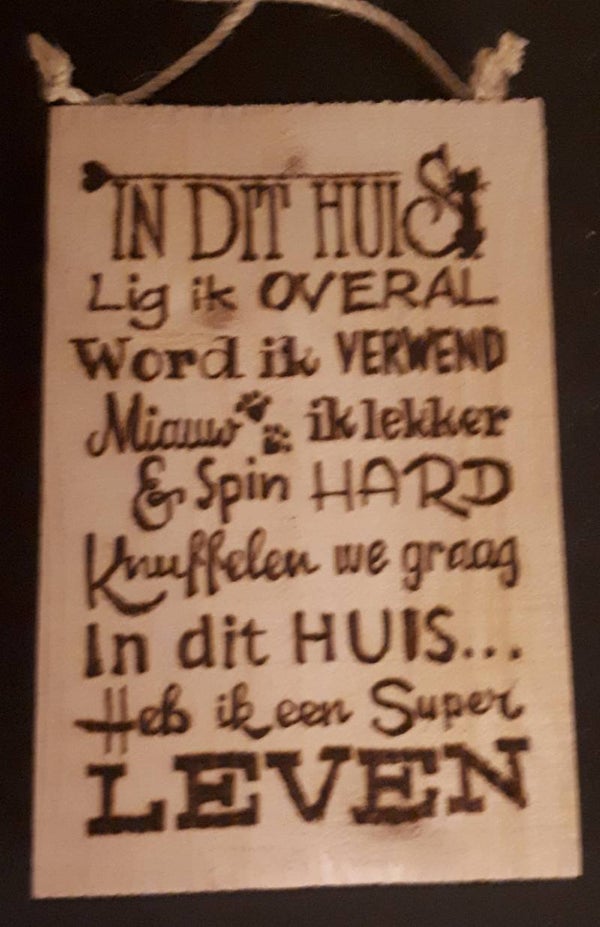 IN DIT HUIS
Lig ik OVERAL
Word ik VERWEND
Miauw ik lekker
& Spin HARD
Knuffelen we graag
In dit HUIS...
Heb ik een Super
LEVEN